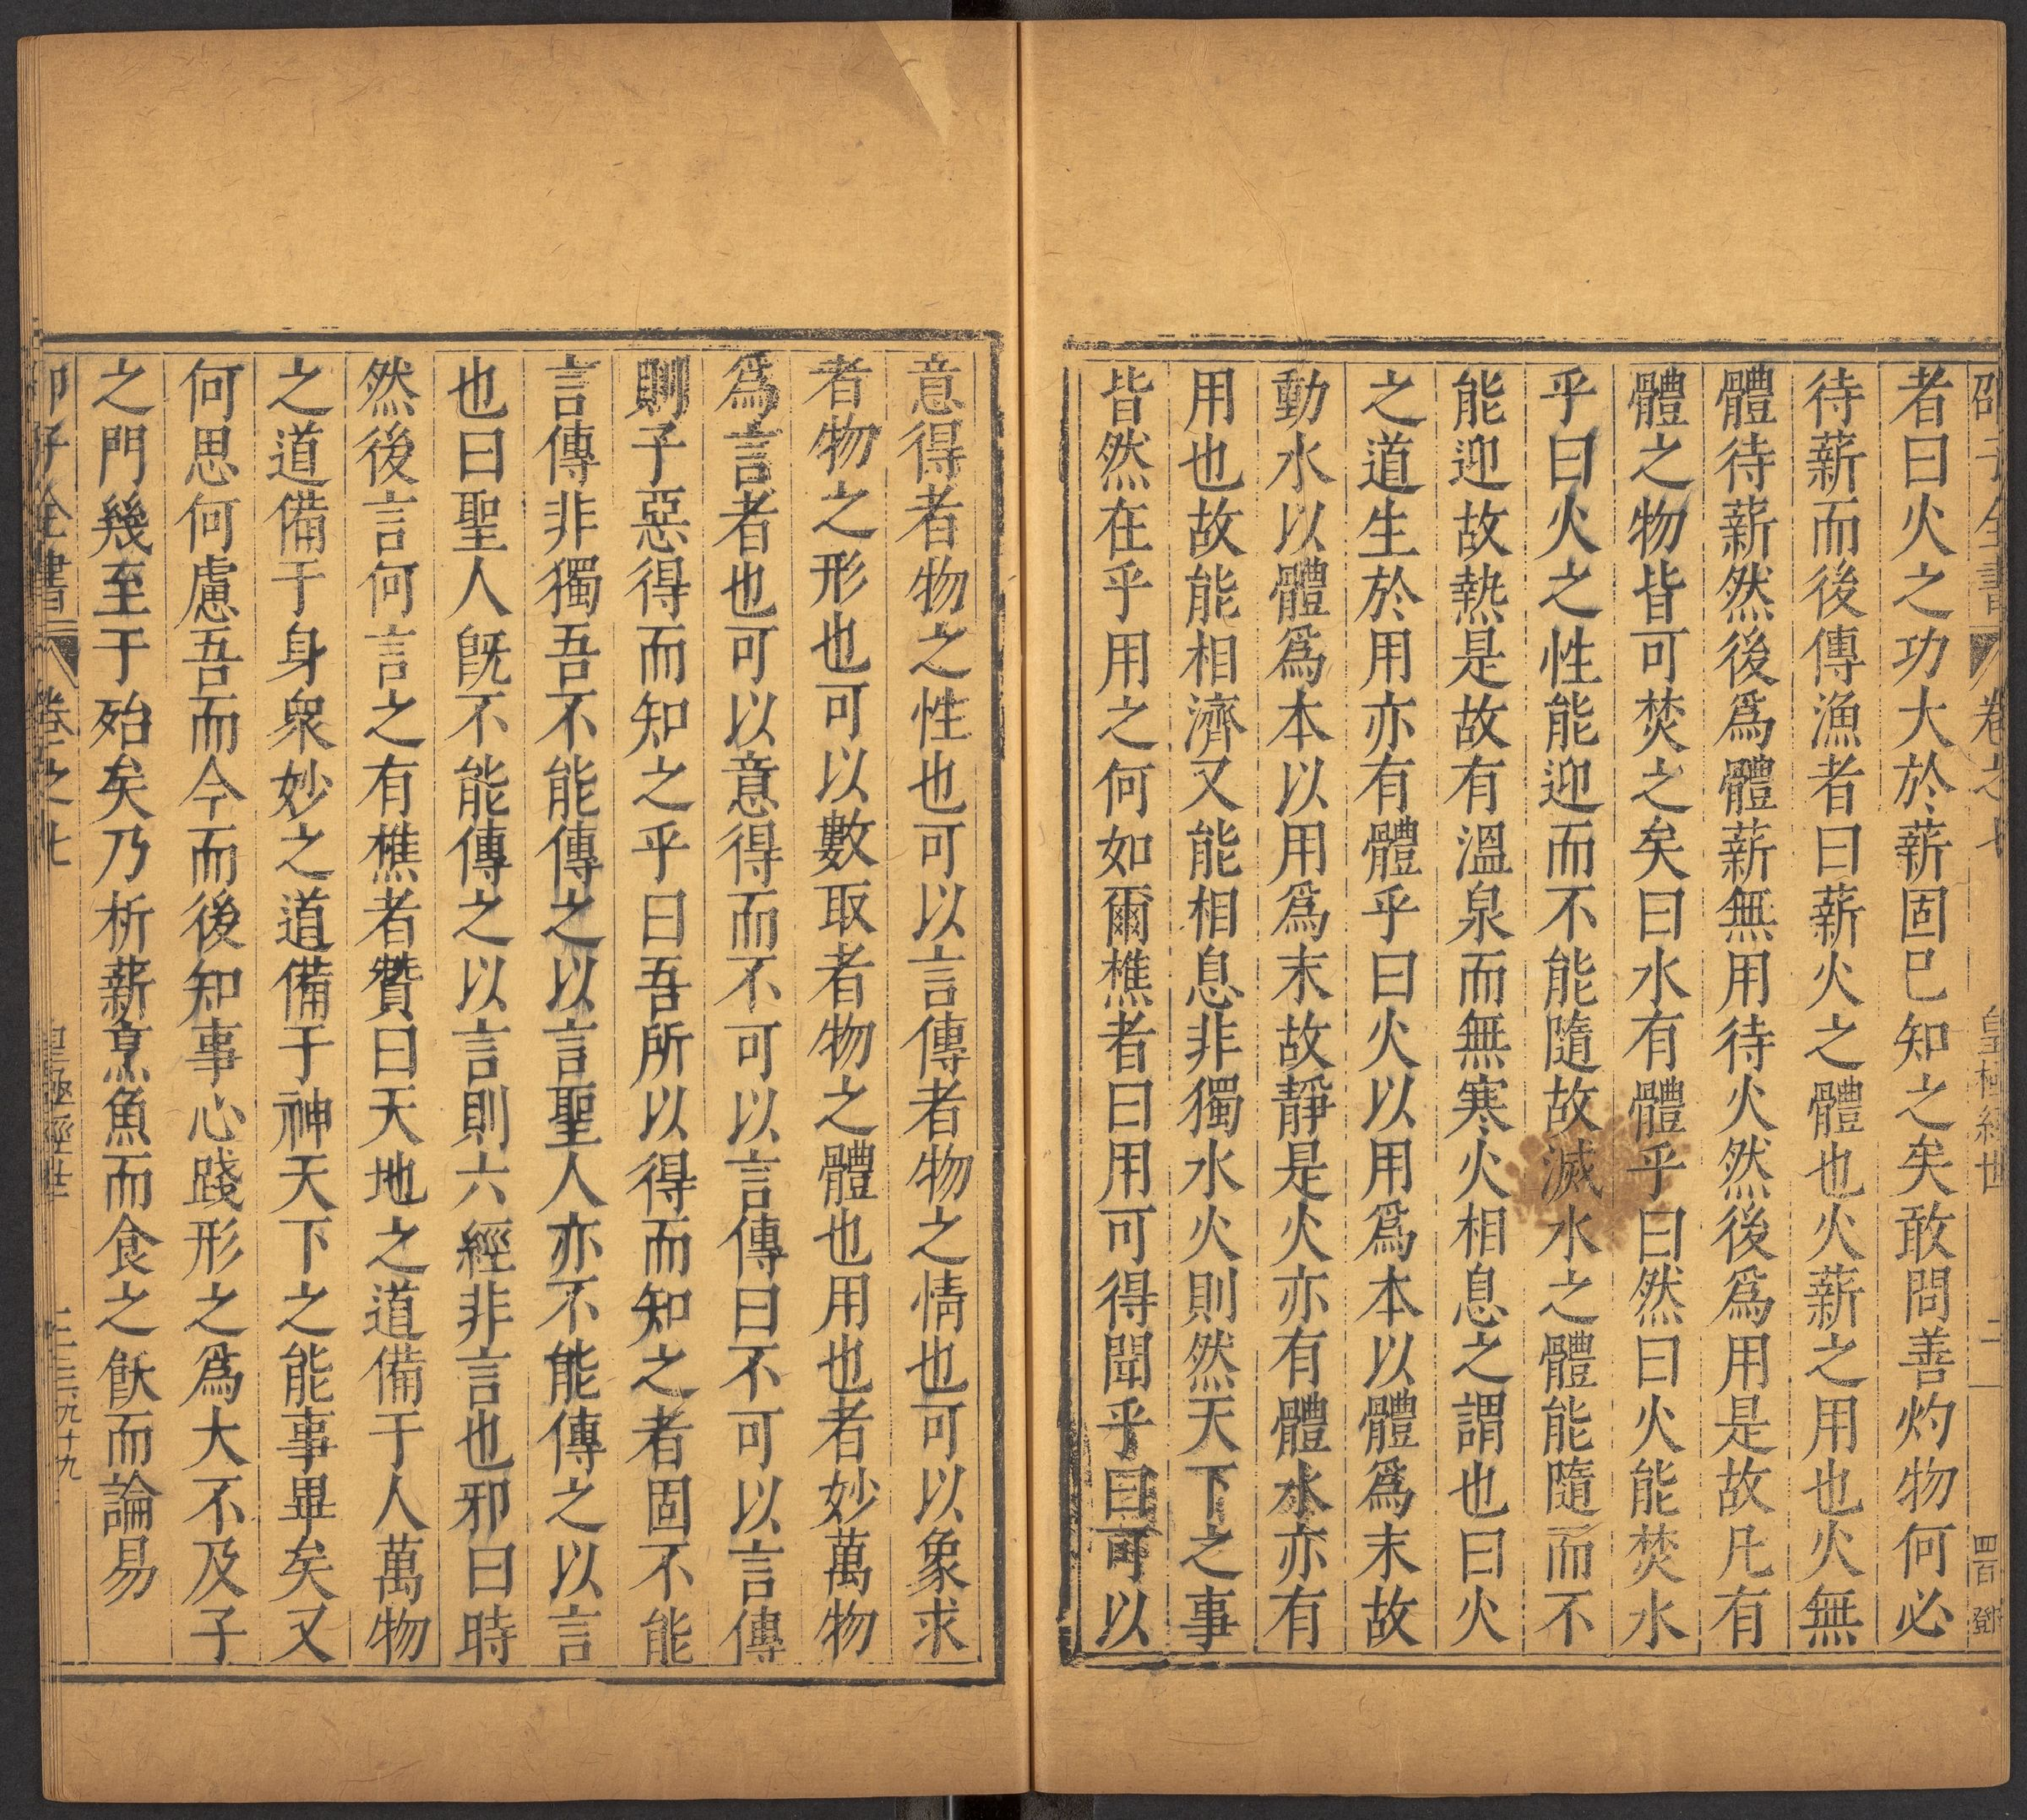 邵子全書 卷之七 皇極經世 二 四百 鄧
者曰火之功大於薪固已知之矣敢問善灼物何必
待薪而後傳漁者曰薪火之體也火薪之用也火無
體待薪然後爲體薪無用待火然後爲用是故凡有
體之物皆可焚之矣曰水有體乎曰然曰火能焚水
乎曰火之性能迎而不能隨故滅水之體能隨而不
能迎故熱是故有溫泉而無寒火相息之謂也曰火
之道生於用亦有體乎曰火以用爲本以體爲末故
動水以體爲本以用爲末故靜是火亦有體水亦有
用也故能相濟又能相息非獨水火則然天下之事
皆然在乎用之何如爾樵者曰用可得聞乎曰可以
意得者物之性也可以言傳者物之情也可以象求
者物之形也可以數取者物之體也用也者妙萬物
爲言者也可以意得而不可以言傳曰不可以言傳
則子惡得而知之乎曰吾所以得而知之者固不能
言傳非獨吾不能傳之以言聖人亦不能傳之以言
也曰聖人旣不能傳之以言則六經非言也邪曰時
然後言何言之有樵者贊曰天地之道備于人萬物
之道備于身衆妙之道備于神天下之能事畢矣又
何思何慮吾而今而後知事心踐形之爲大不及子
之門幾至于殆矣乃析薪烹魚而食之飫而論易
邵子全書 卷之七 皇極經世 三 三九十九